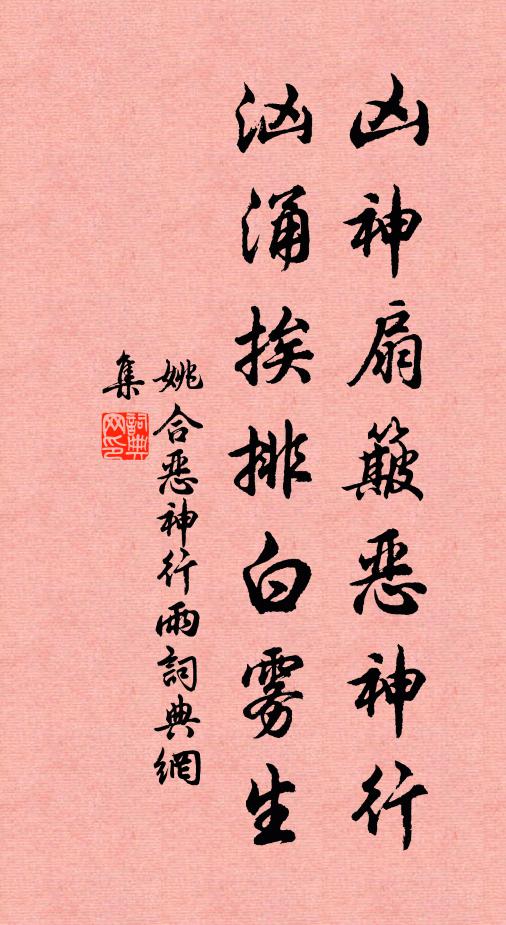 凶神扇簸恶神行
汹涌挨排白雾生
姚合恶神行雨詞典網
集
詞典网印